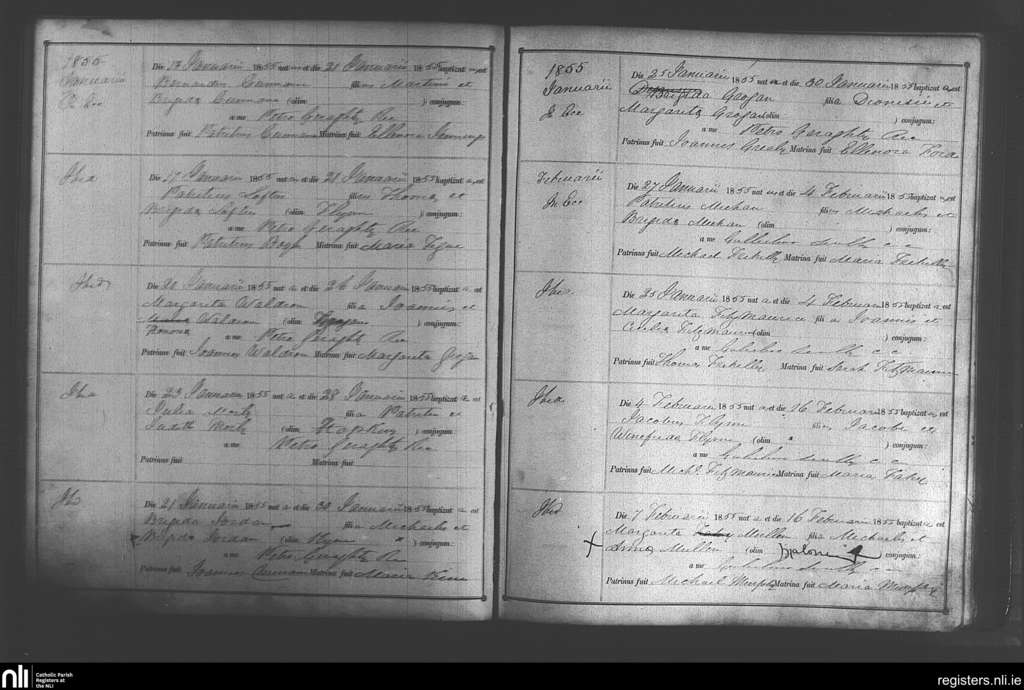 1855
Januarii
In Ecc
Die 13 Januarii 1855 nat et die 21 Januarii 1855 baptizat est
Bernardus Cunnane filius Martini et
Brigida Cunnane (olim ) conjugum:
a me Petro Geraghty Rec
Patrinus fuit Patritius Cunnane Matrina fuit Ellenora Jennings
Ibid
Die 17 Januarii 1855 nat et die 21 Januarii 1855 baptizat est
Patritius filius Thoma et
Brigida (olim Flynn ) conjugum:
a me Petro Geraghty Rec
Patrinus fuit Patritius Matrina fuit Maria
Ibid
Die 20 Januarii 1855 nat a et die 26 Januarii 1855 baptizat a est
Margarita Waldron fili a Joannis et
Waldron (olim ) conjugum:
Honora
a me Petro Geraghty Rec
Patrinus fuit Joannes Waldron Matrina fuit Margarita Grogan
Ibid
Die 23 Januarii 1855 nat a et die 28 Januarii 1855 baptizat a est
Julia fili a Patritii et
Judith (olim Hopkins ) conjugum:
a me Petro Geraghty Rec
Patrinus fuit Matrina fuit
Ibid
Die 21 Januarii 1855 nat a et die 30 Januarii 1855 baptizat a est
Brigida Jordan fili a Michaelis et
Brigida Jordan (olim Flynn ) conjugum:
a me Petro Geraghty Rec
Patrinus fuit Joannes Matrina fuit Maria
1855
Januarii
In Ecc
Die 25 Januarii 1855 nat a et die 30 Januarii 1855 baptizat a est
Brigida Grogan fili a Dionisii et
Margarita Grogan (olim ) conjugum:
a me Petro Geraghty Rec
Patrinus fuit Joannes Grealy Matrina fuit Ellenora Ford
Februarii
In Ecc
Die 27 Januarii 1855 nat us et die 4 Februarii 1855 baptizat us est
Patritius Meehan filius Michaelis et
Brigida Meehan (olim ) conjugum:
a me Gulielmo Scully c c
Patrinus fuit Michael Matrina fuit Maria
Ibid
Die 25 Januarii 1855 nat a et die 4 Februarii 1855 baptizat a est
Margarita FitzMaurice fili a Joannis et
Cecilia FitzMaurice (olim ) conjugum:
a me Gulielmo Scully c c
Patrinus fuit Thomas Matrina fuit Sarah FitzMaurice
Ibid
Die 4 Februarii 1855 nat et die 16 Februarii 1855 baptizat est
Jacobus Flynn filius Jacobi et
Winefrida Flynn (olim " ) conjugum:
a me Gulielmo Scully c c
Patrinus fuit Michl FitzMaurice Matrina fuit Maria
Ibid
Die 7 Februarii 1855 nat a et die 16 Februarii 1855 baptizat a est
Margarita Mullen fili a Michaelis et
Anna Mullen (olim Malone ) conjugum:
a me Gulielmo Scully c c
Patrinus fuit Michael Murphy Matrina fuit Maria Murphy
nli
Catholic Parish
Registers at
the NLI
registers.nli.ie